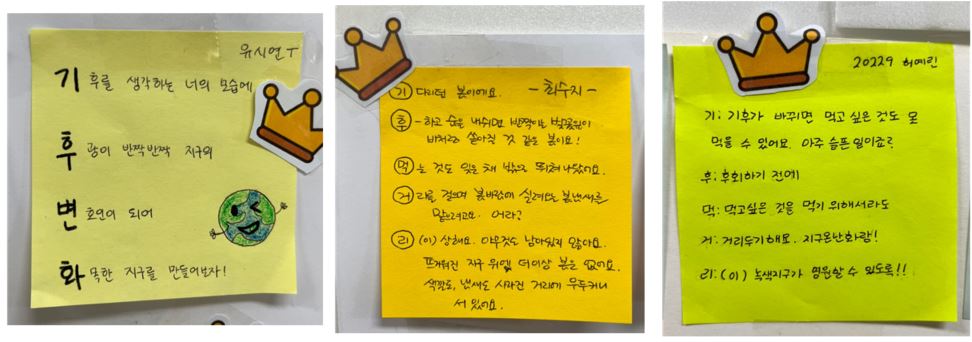 유시연T
기 후를 생각하는 너의 모습에
후 광이 반짝반짝 지구의
변 호인이 되어
화 목한 지구를 만들어보자!
-최수지-
기 다리던 봄이에요.
후 -하고 숨을 내쉬면 반짝이는 벚꽃잎이
비처럼 쏟아질 것 같은 봄이요!
먹 는 것도 잊은 채 밖으로 뛰쳐나갔어요.
거 리를 걸으며 봄바람에 실려오는 봄냄새를
맡으려고요. 어라?
리 (이) 상해요. 아무것도 남아있지 않아요.
뜨거워진 지구 위엔 더이상 봄은 없어요.
색깔도, 냄새도 사라진 거리에 우두커니
서 있어요.
20229 허예린
기: 기후가 바뀌면 먹고 싶은 것도 못
먹을 수 있어요. 아주 슬픈 일이죠?
후: 후회하기 전에
먹: 먹고싶은 것을 먹기 위해서라도
거: 거리두기해요. 지구온난화랑!
리: (이) 녹색지구가 영원할 수 있도록!!